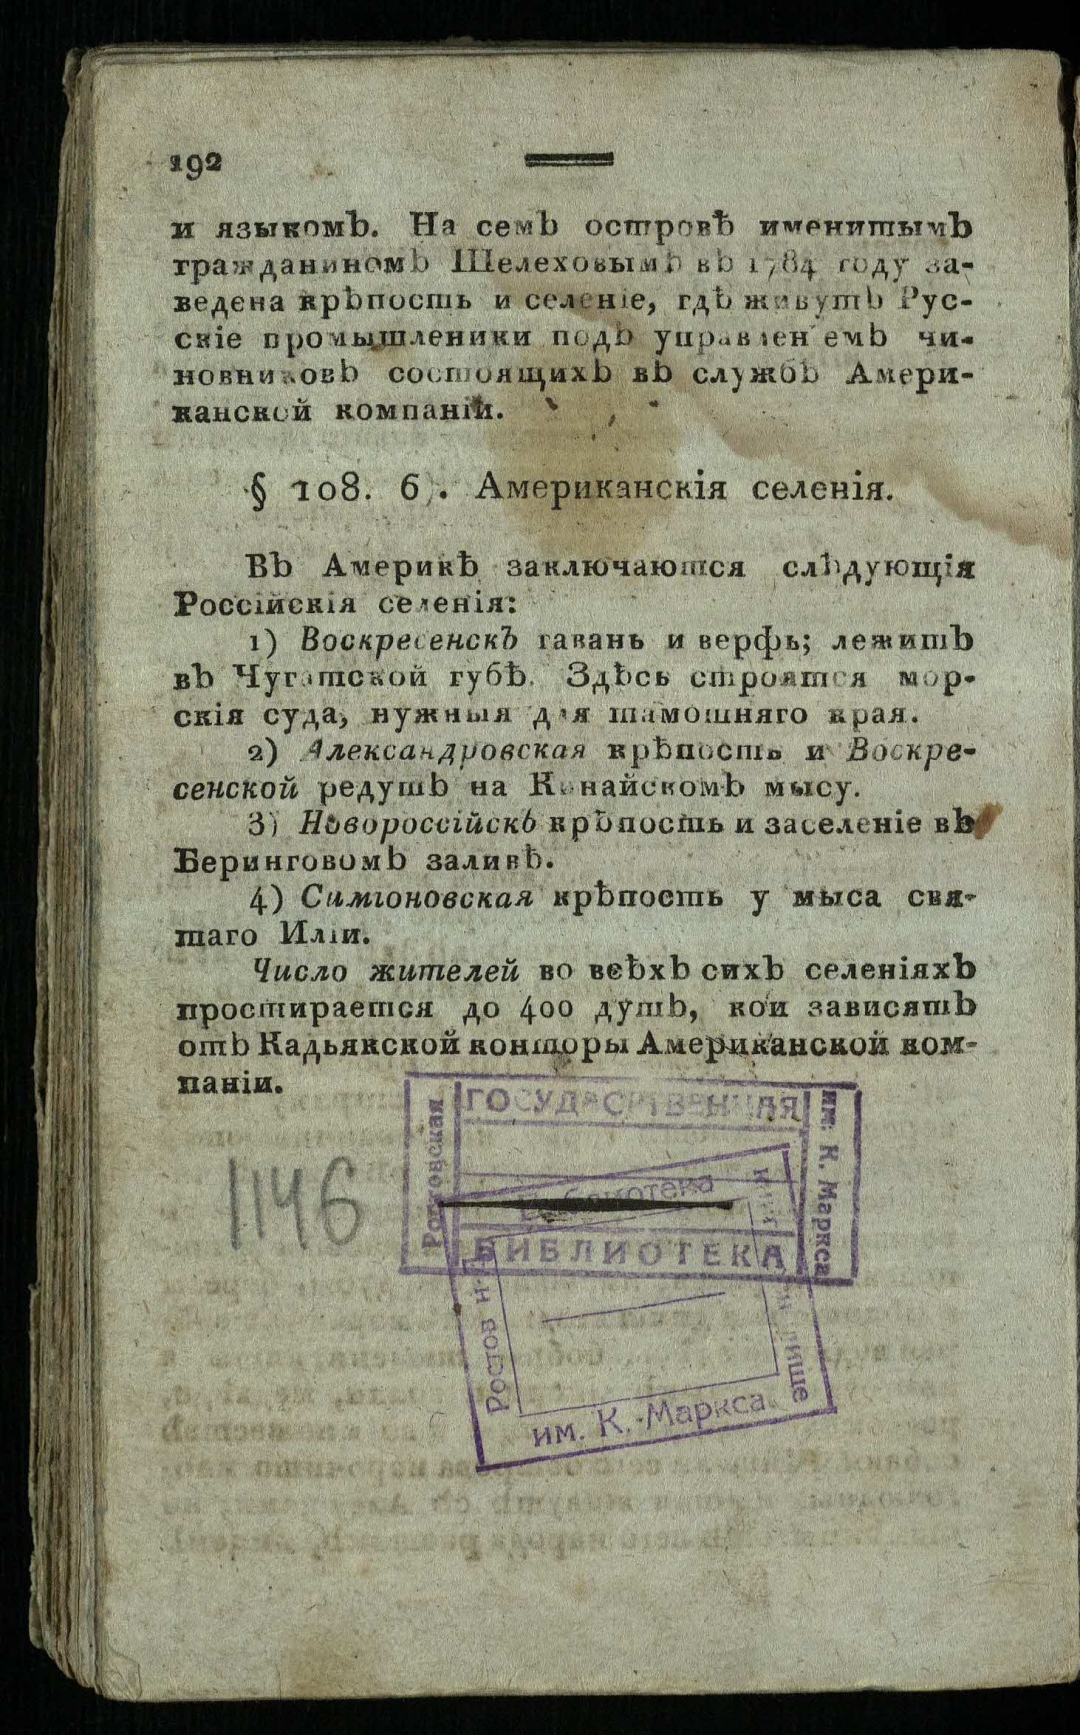 192
и языкомЪ. На семЪ островѣ именитымЪ
гражданиномЪ ШелеховымЪ вЪ 1784 году за-
ведена крѣпость и селеніе, гдѣ живутЪ Рус-
скіе промышленики подЪ управленіемЪ чи-
новниковЪ состоящихЪ вЪ службѣ Амери-
канской компаніи.
§ 108. 6). Американскія селенія.
ВЪ Америкѣ заключаются слѣдующія
Россійскія селенія:
1) ВоскресенскЪ гавань и верфь; лежитЪ
вЪ Чугатской губѣ. Здѣсь строятся мор-
скія суда, нужныя для тамошняго края.
2) Александровская крѣпость и Воскре-
сенской редутЪ на КинайскомЪ мысу.
3) НовороссійскЪ крѣпость и заселеніе вЪ
БеринговомЪ заливѣ.
4) Симіоновская крѣпость у мыса свя-
таго Иліи.
Число жителей во всѣхЪ сихЪ селеніяхЪ
простирается до 400 душЪ, кои зависятЪ
отЪ Кадьякской конторы Американской ком-
паніи.
1146
Ростовская
ГОСУДАРСТВЕННАЯ
БИБЛИОТЕКА
им. К. Маркса
Библиотека
Ростов н-Д
им. К. Маркса